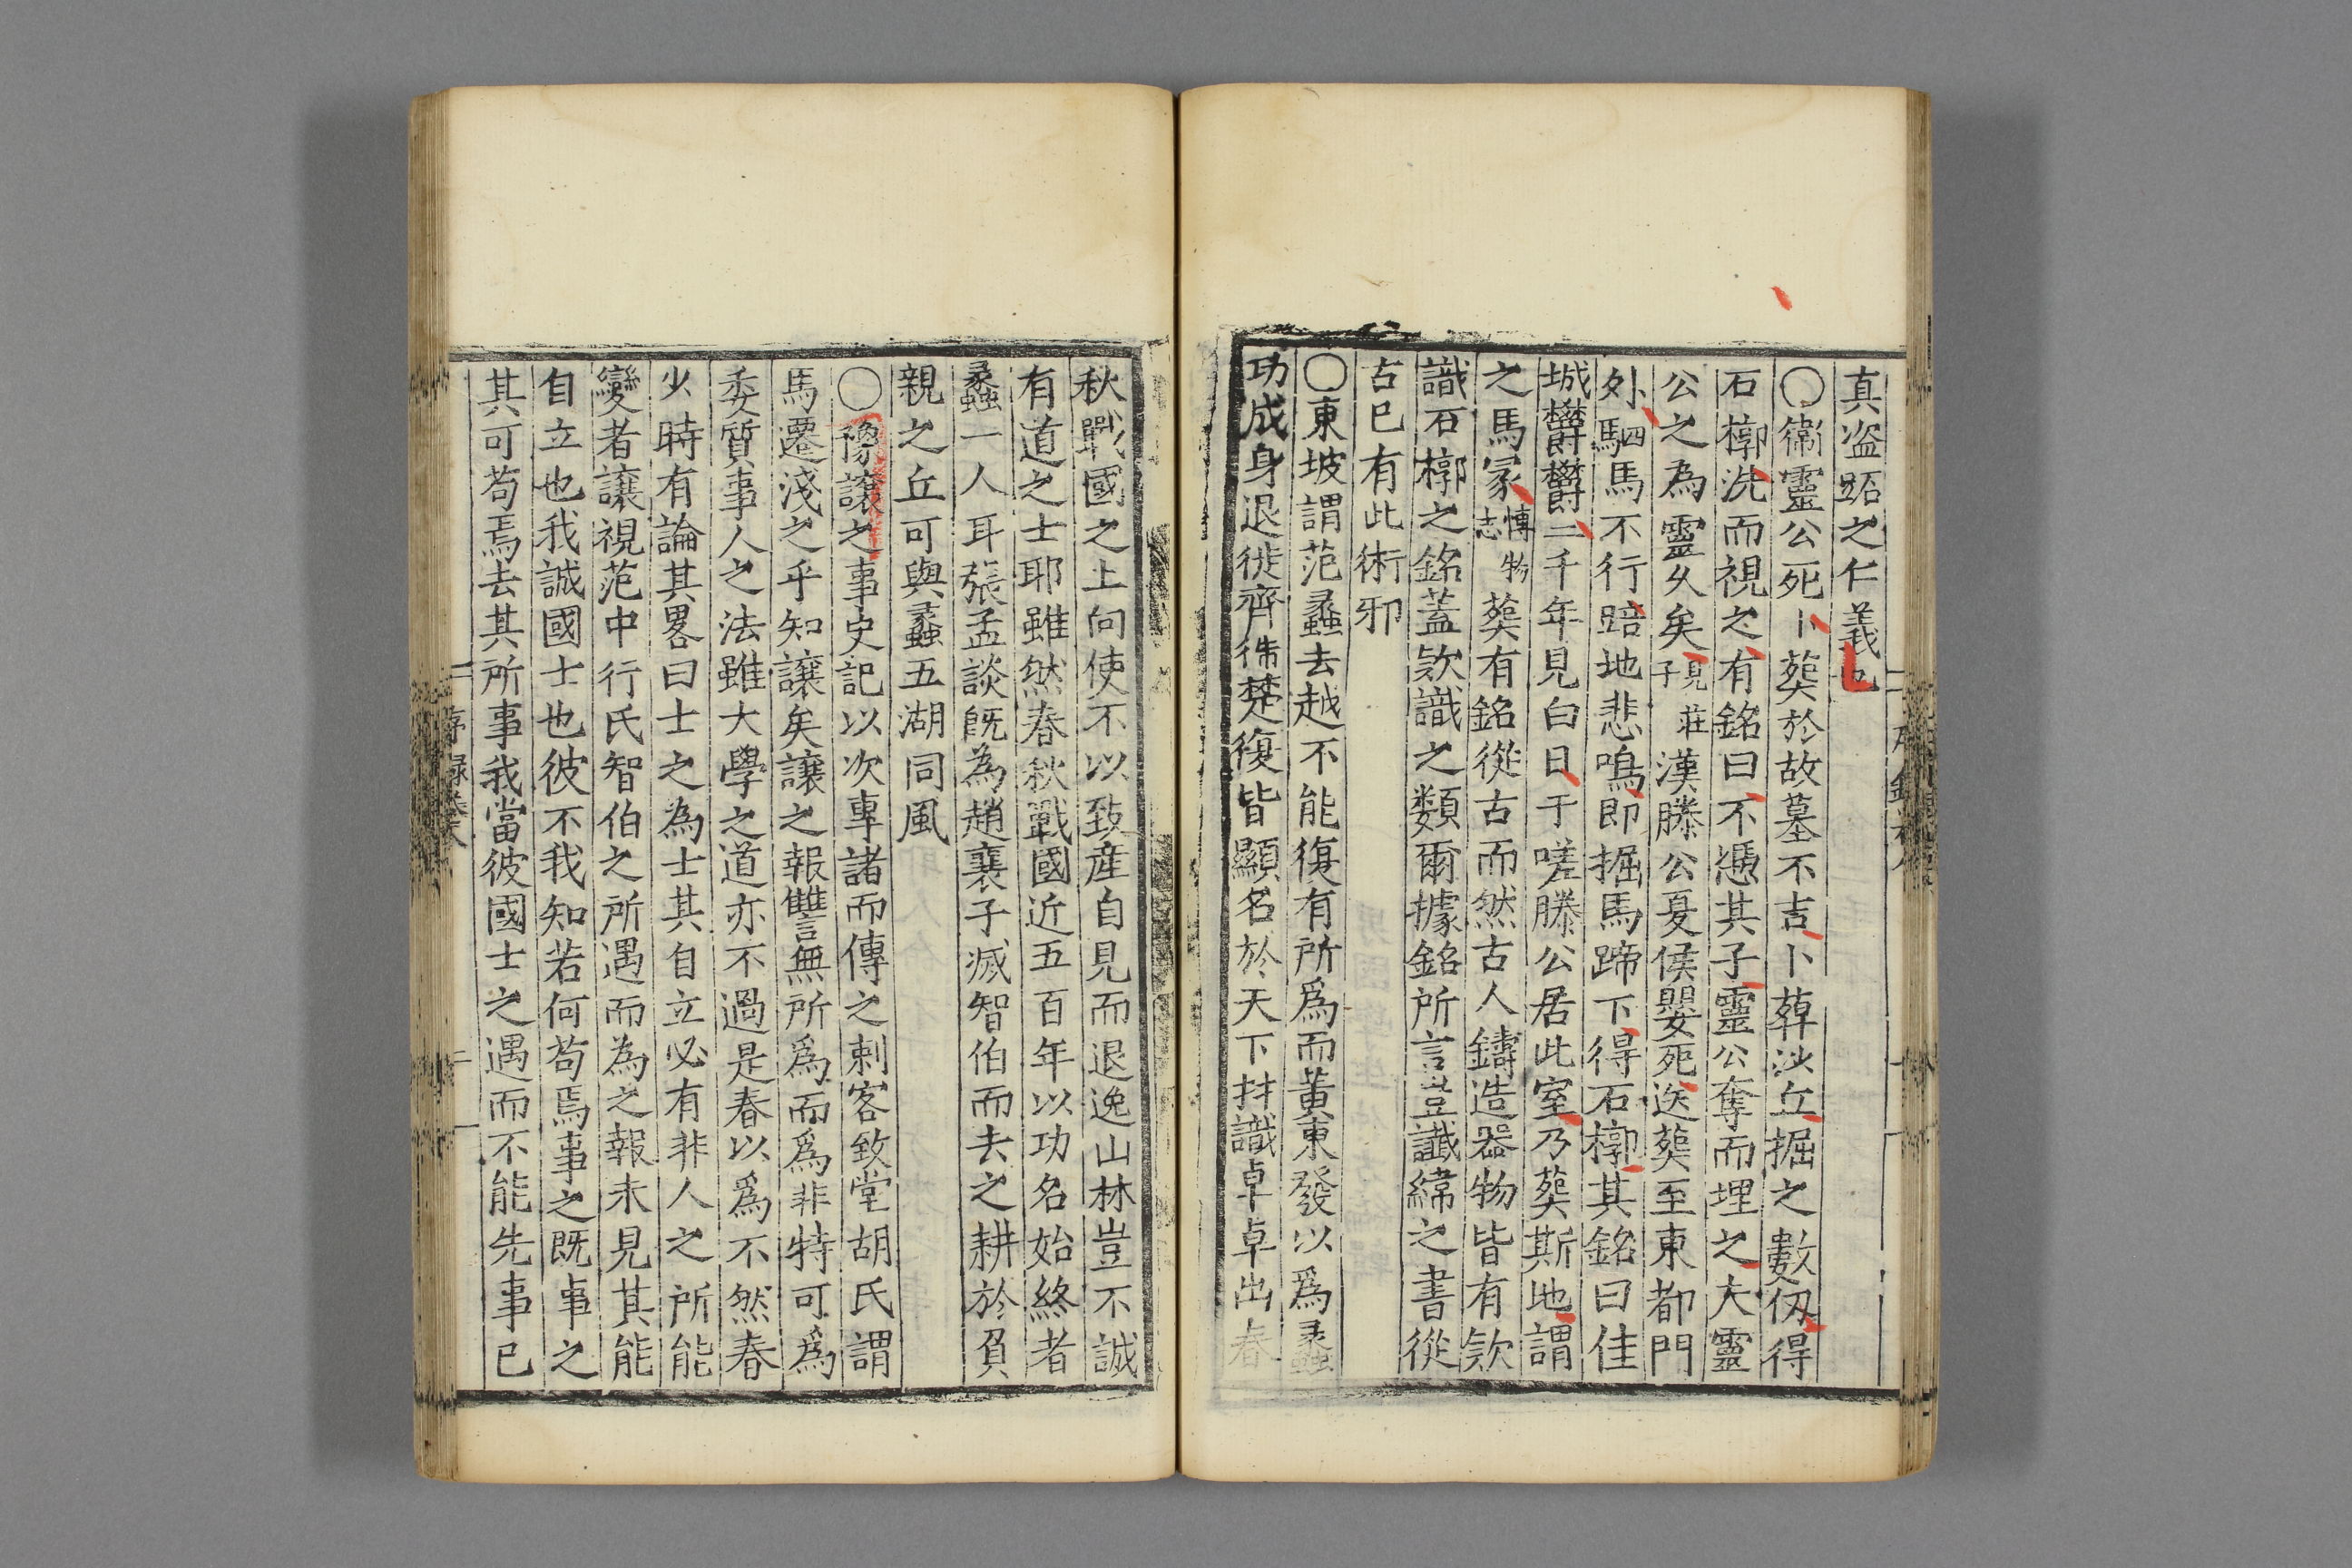 真盗跖之仁義也
〇衞靈公死卜葬於故墓不吉卜葬沙丘掘之數仭得
石槨洗而視之有銘曰不憑其子靈公奪而埋之大靈
公之為靈久矣見莊子漢滕公夏侯嬰死送葬至東都門
外駟馬不行踣地悲鳴即掘馬蹄下得石槨其銘曰佳
城欝欝三千年見白日于嗟滕公居此室乃葬斯地謂
之馬冢博物志葬有銘從古而然古人鑄造器物皆有欵
識石槨之銘蓋欵識之類爾據銘所言豈讖緯之書從
古已有此術邪
〇東坡謂范蠡去越不能復有所爲而黃東發以爲蠡
功成身退徙齊徙楚復皆顯名於天下才識卓卓出春
秋戰國之上向使不以致産自見而退逸山林豈不誠
有道之士耶雖然春秋戰國近五百年以功名始終者
蠡一人耳張孟談既為趙襄子滅智伯而去之耕於負
親之丘可與蠡五湖同風
〇豫讓之事史記以次専諸而傳之刺客致堂胡氏謂
馬遷淺之乎知讓矣讓之報讐無所爲而爲非特可爲
委質事人之法雖大學之道亦不過是春以爲不然春
少時有論其畧曰士之為士其自立必有非人之所能
變者讓視范中行氏智伯之所遇而為之報未見其能
自立也我誠國士也彼不我知若何苟焉事之既事之
其可苟焉去其所事我當彼國士之遇而不能先事已